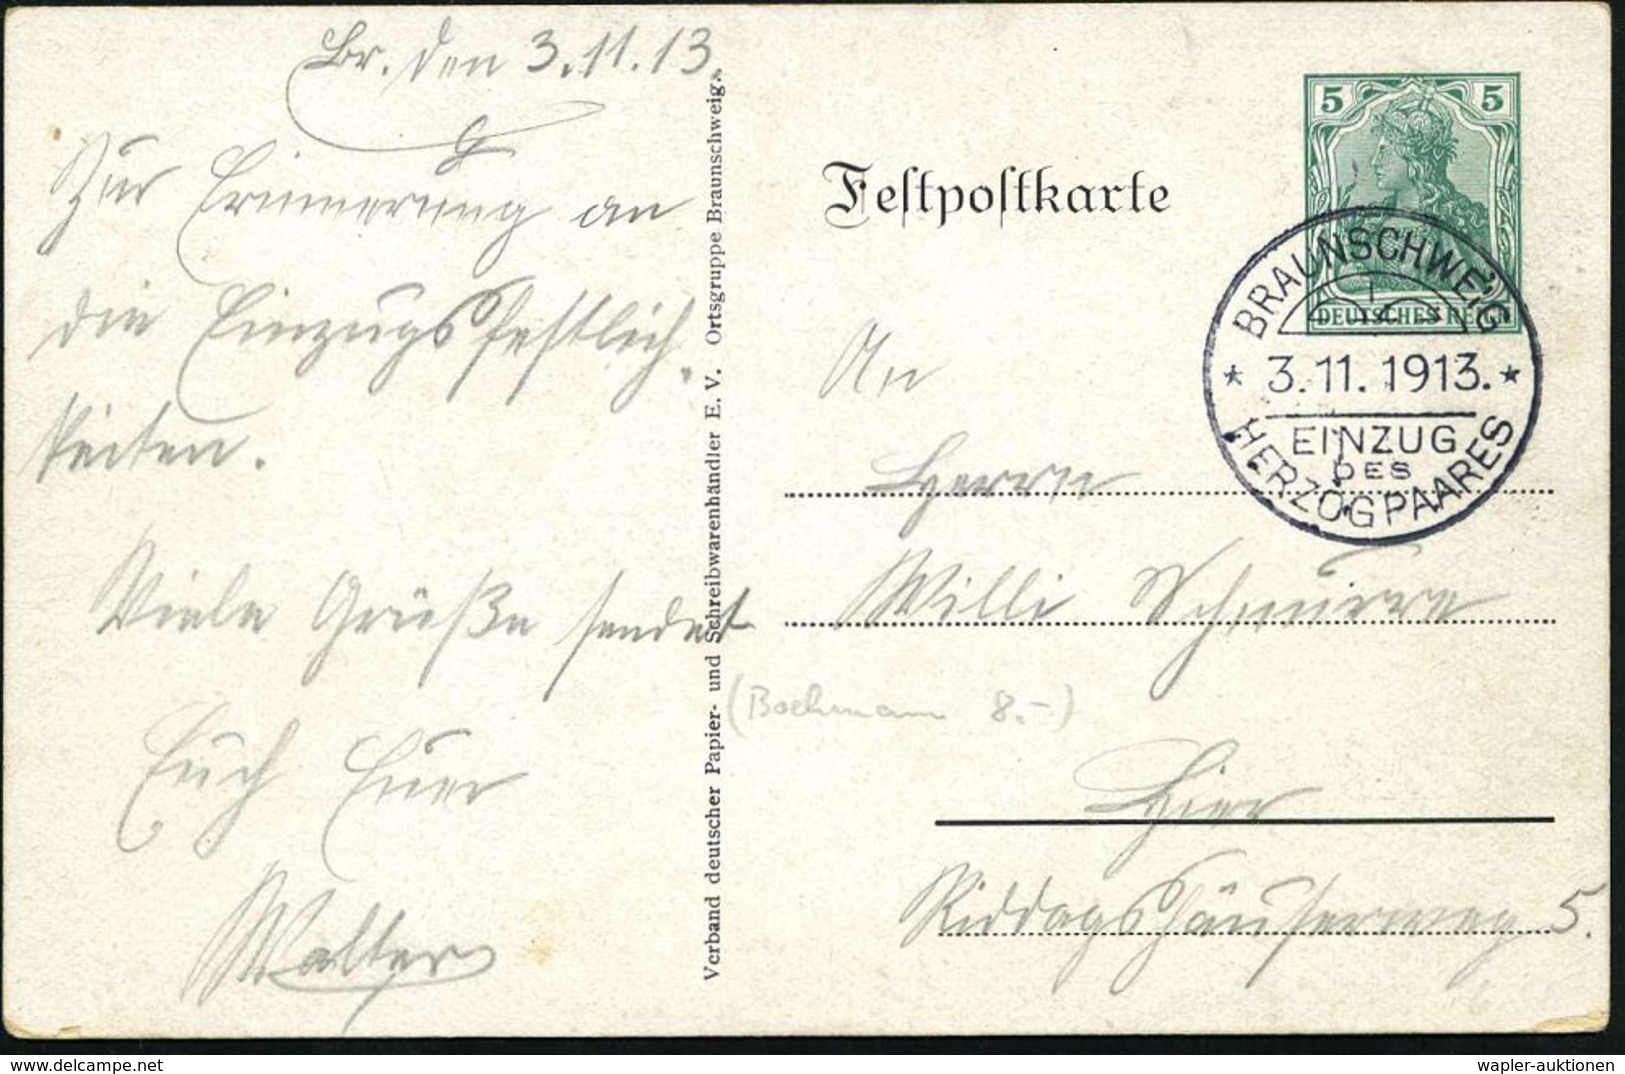 Br. den 3.11.13.
Zur Erinnerung an
die Einzugsfestlich-
keiten.
Viele Grüße sendet
Euch Euer
Walter
Verband deutscher Papier- und Schreibwarenhändler E. V. Ortsgruppe Braunschweig.
Feſtpoſtkarte
5 5
DEUTSCHES REICH
BRAUNSCHWEIG
* 3.11.1913. *
EINZUG
DES
HERZOGPAARES
An
Herrn
Willi
(Bochmann 8.-)
Hier
Riddagshäuserweg 5.
wapler-auktionen